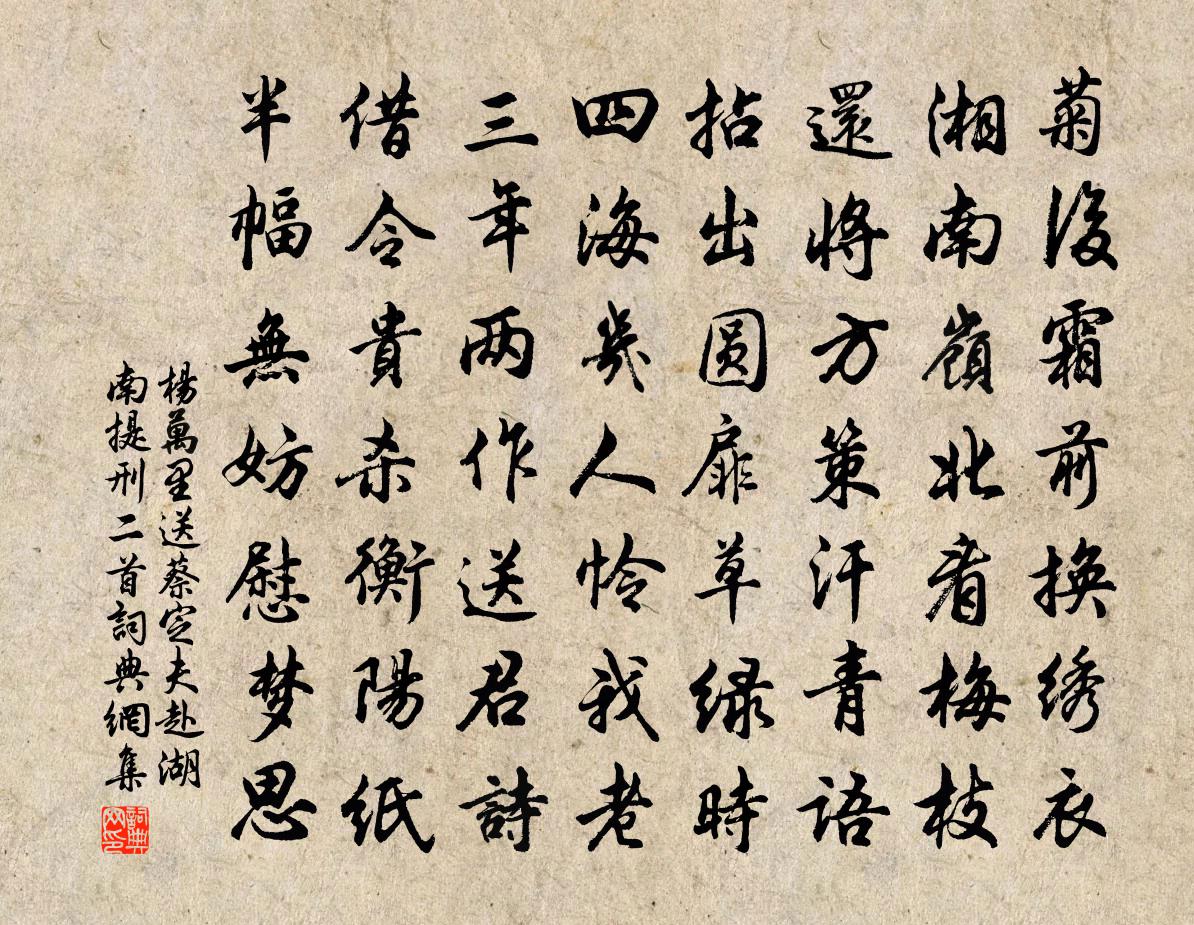 菊後霜前換綉衣
湘南嶺北看梅枝
還将方策汗青語
拈出圓扉草緑時
四海幾人怜我老
三年两作送君詩
借令貴杀衡陽紙
半幅無妨慰梦思
楊萬里送蔡定夫赴湖
南提刑二首詞典網集
詞典网印